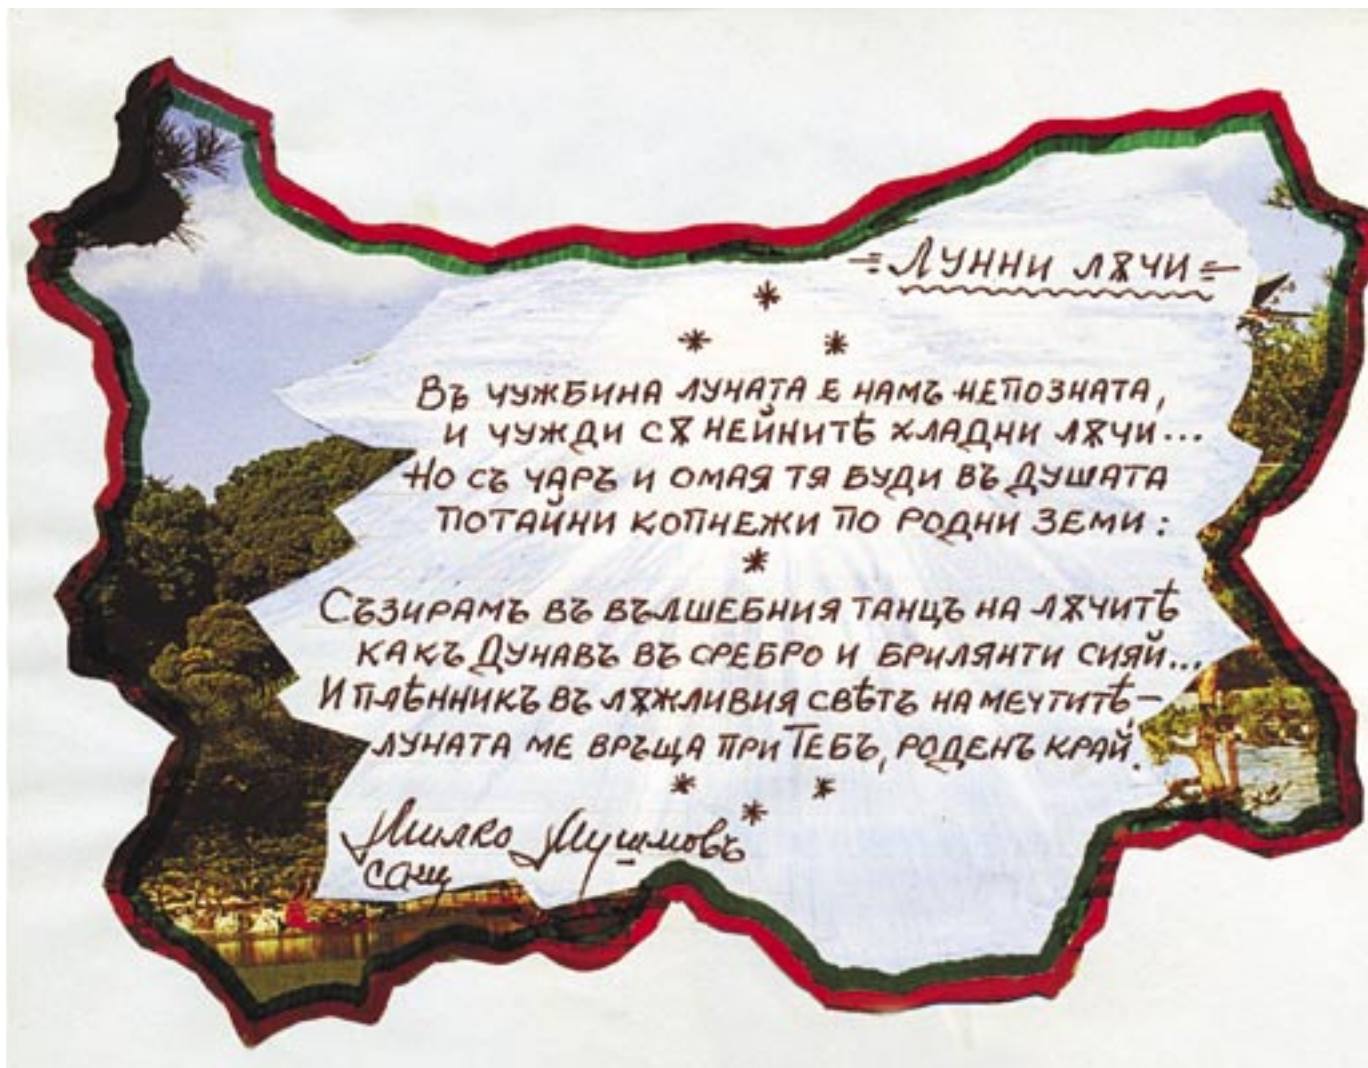 = Лунни лѫчи =
Въ чужбина луната е намъ непозната,
и чужди сѫ нейнитѣ хладни лѫчи...
Но съ чаръ и омая тя буди въ душата
потайни копнежи по родни земи:
Съзирамъ въ вълшебния танцъ на лѫчитѣ
какъ Дунавъ въ сребро и брилянти сияй...
И плѣнникъ въ лѫжливия свѣтъ на мечтитѣ –
луната ме връща при Тебъ, роденъ край.
Милко Мушмовъ
САЩ